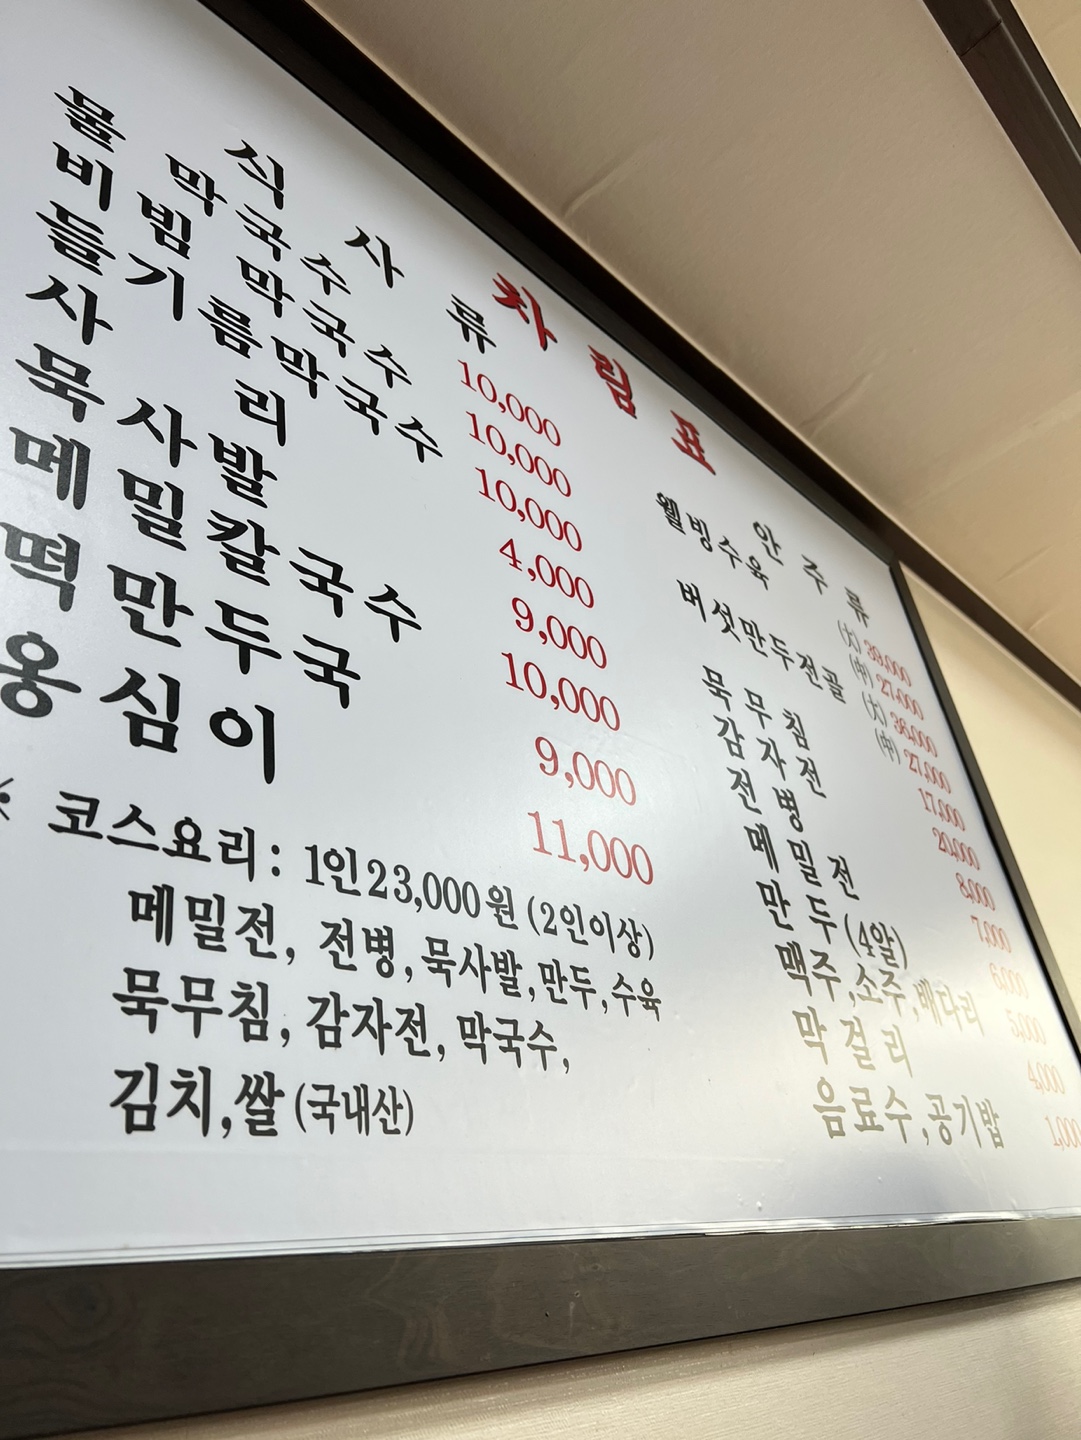 차림표
식사류
물막국수 10,000
비빔막국수 10,000
들기름막국수 10,000
사리 4,000
묵사발 9,000
메밀칼국수 10,000
떡만두국 9,000
옹심이 11,000
※ 코스요리: 1인23,000원 (2인이상)
메밀전, 전병,묵사발,만두,수육
묵무침, 감자전, 막국수,
김치,쌀 (국내산)
안주류
웰빙수육 (大) 39,000
(中) 27,000
버섯만두전골 (大) 36,000
(中) 27,000
묵무침 17,000
감자전 20,000
전병 8,000
메밀전 7,000
만두(4알) 6,000
맥주,소주,배다리 5,000
막걸리 4,000
음료수,공기밥 1,000